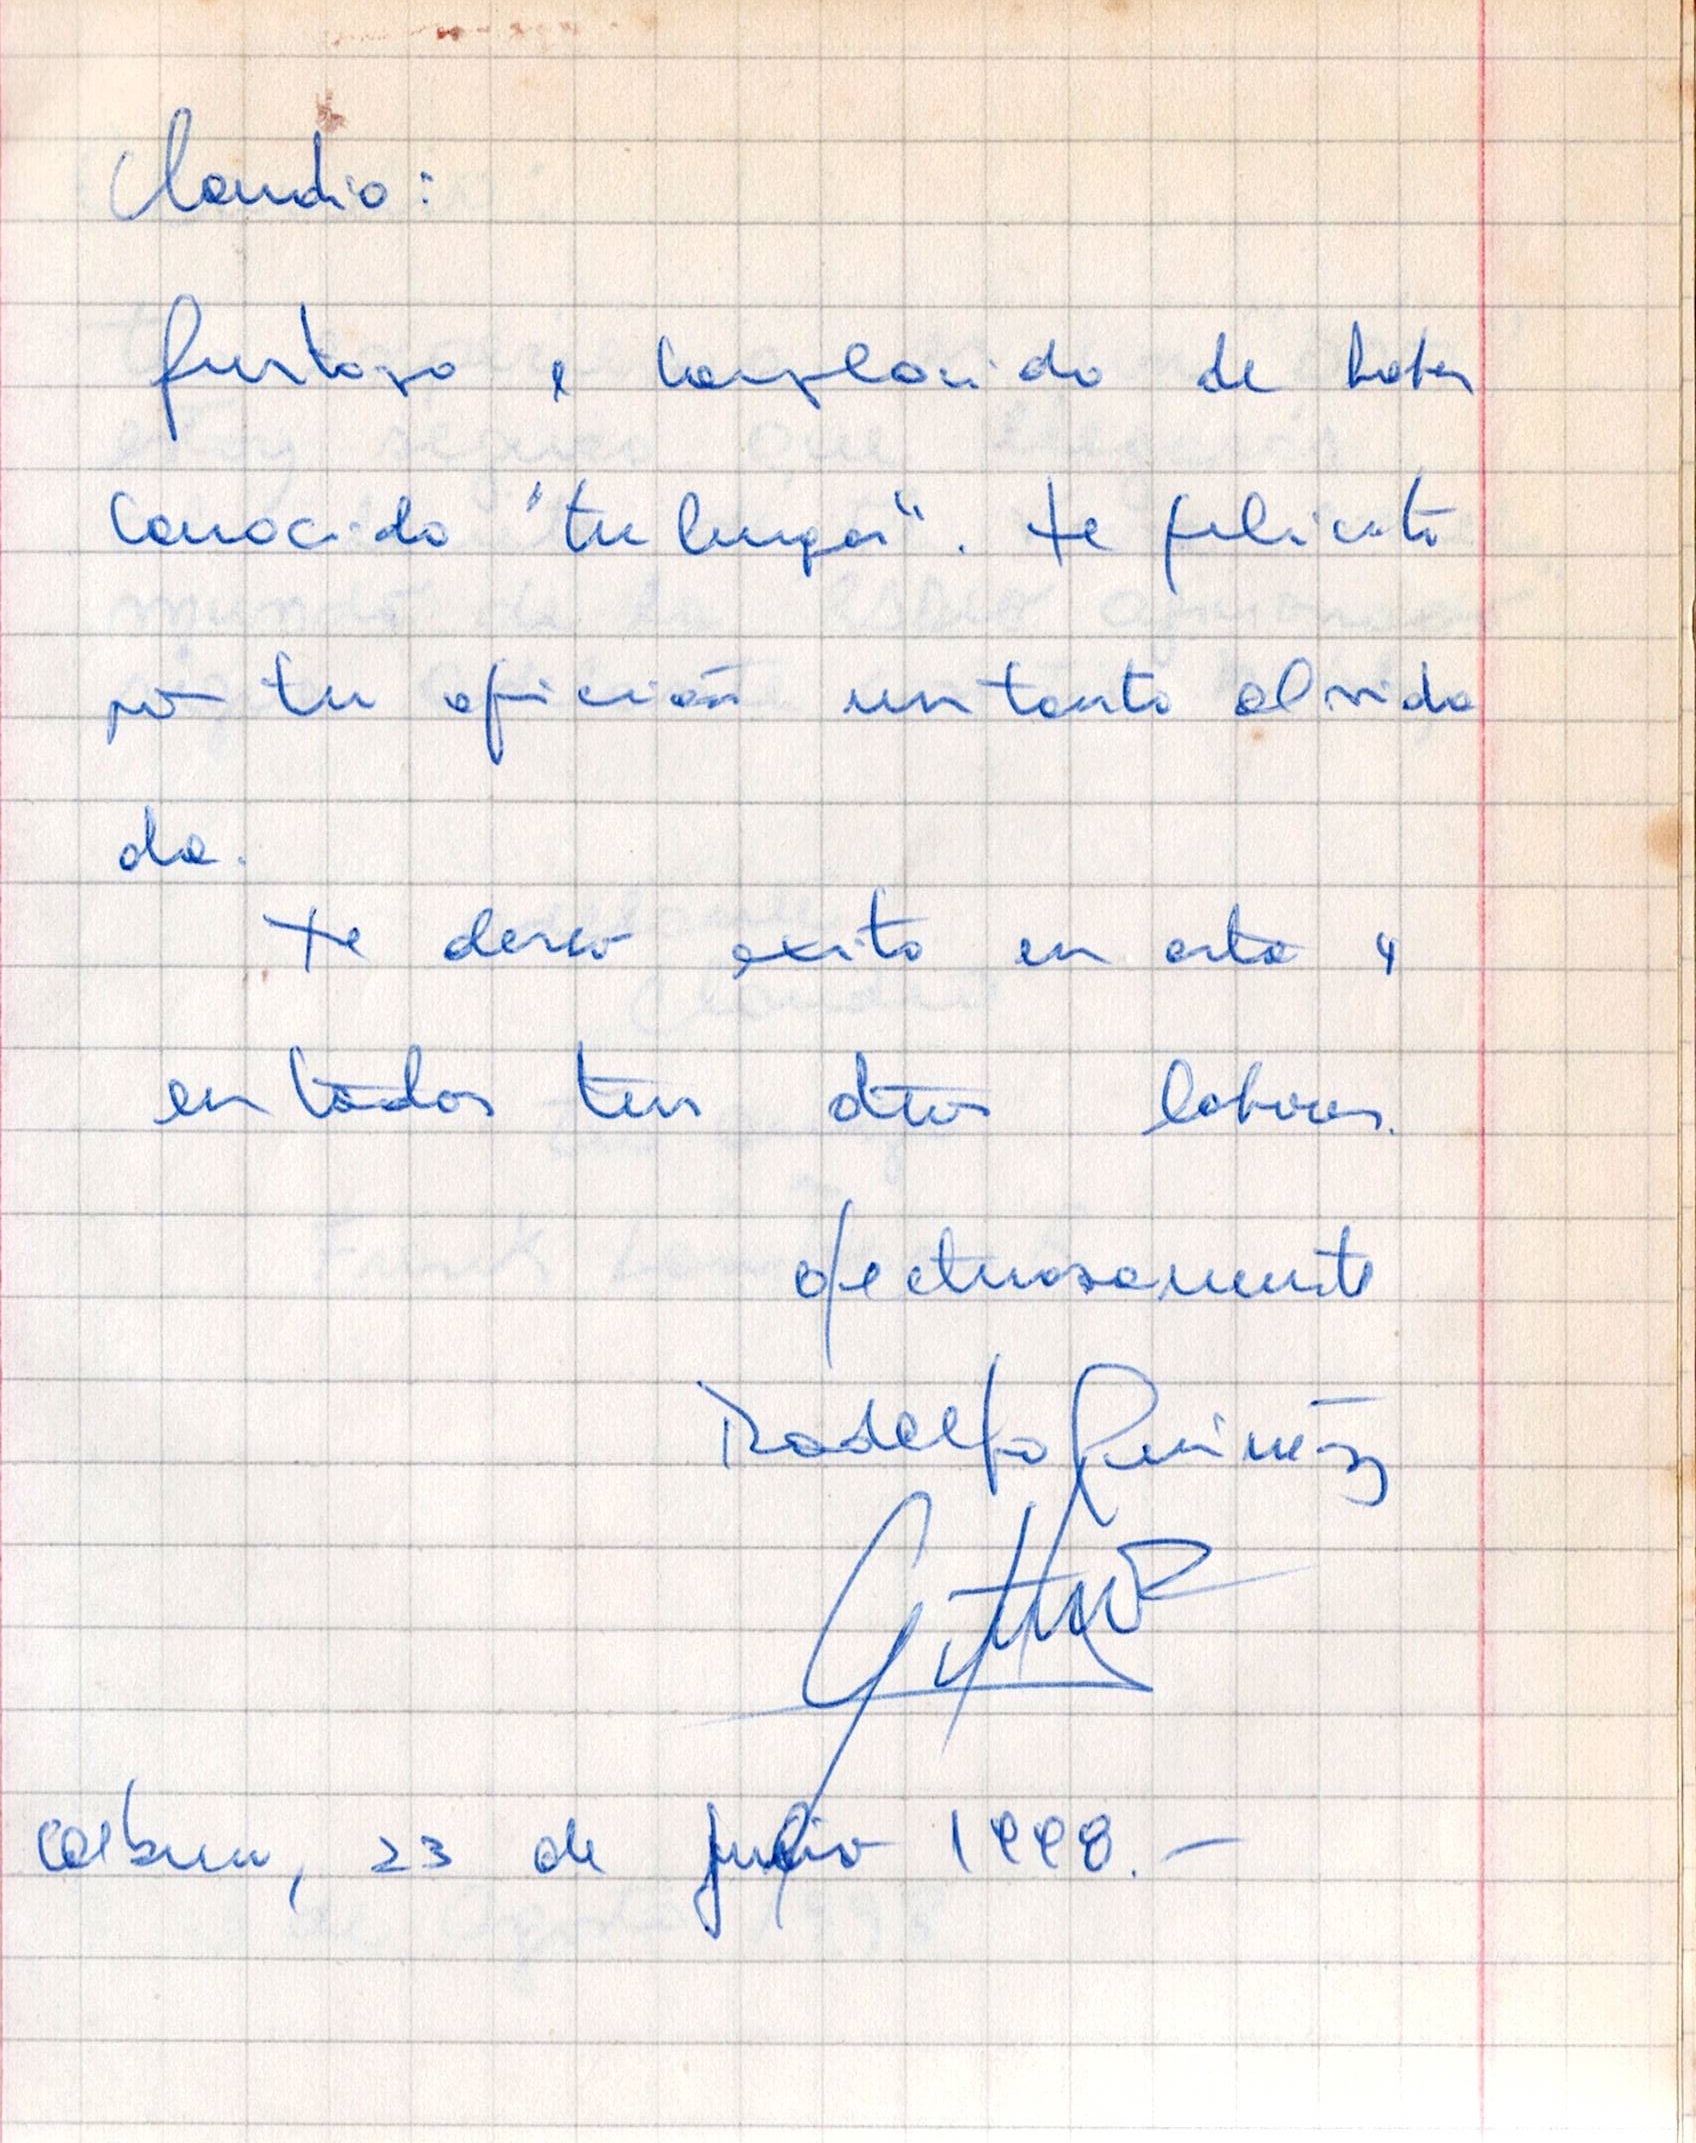 Claudio:
Gustoso e complacido de haber
conocido "tu lugar". Te felicito
por tu afición un tanto olvida
da.
Te deseo exito en esta y
en todas tus otras labores.
afectuosamente
Rodolfo
Colbun, 23 de julio 1998.-